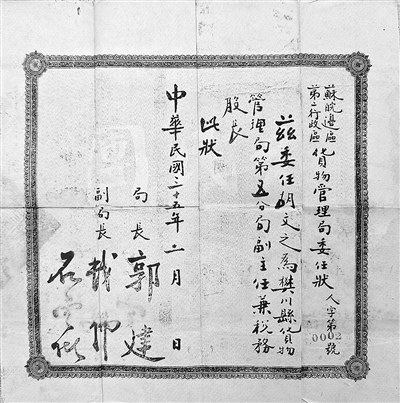 蘇皖邊區
第二行政區
貨物管理局委任狀
人字第0002號
茲委任胡文之為樊川縣貨物
管理局第五分局副主任兼稅務
股長
此狀
中華民國三十五年二月 日
局長 郭建
副局長